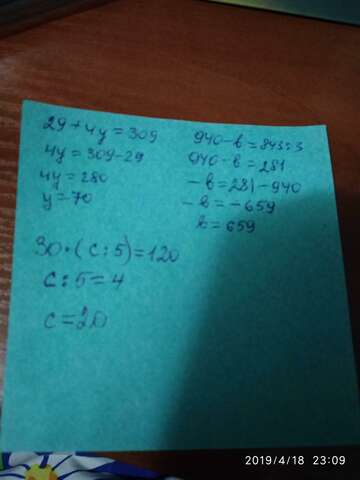 29+4y=309
4y=309-29
4y=280
y=70
940-b=843:3
940-b=281
-b=281-940
-b=-659
b=659
30•(c:5)=120
c:5=4
c=20
2019/4/18 23:09